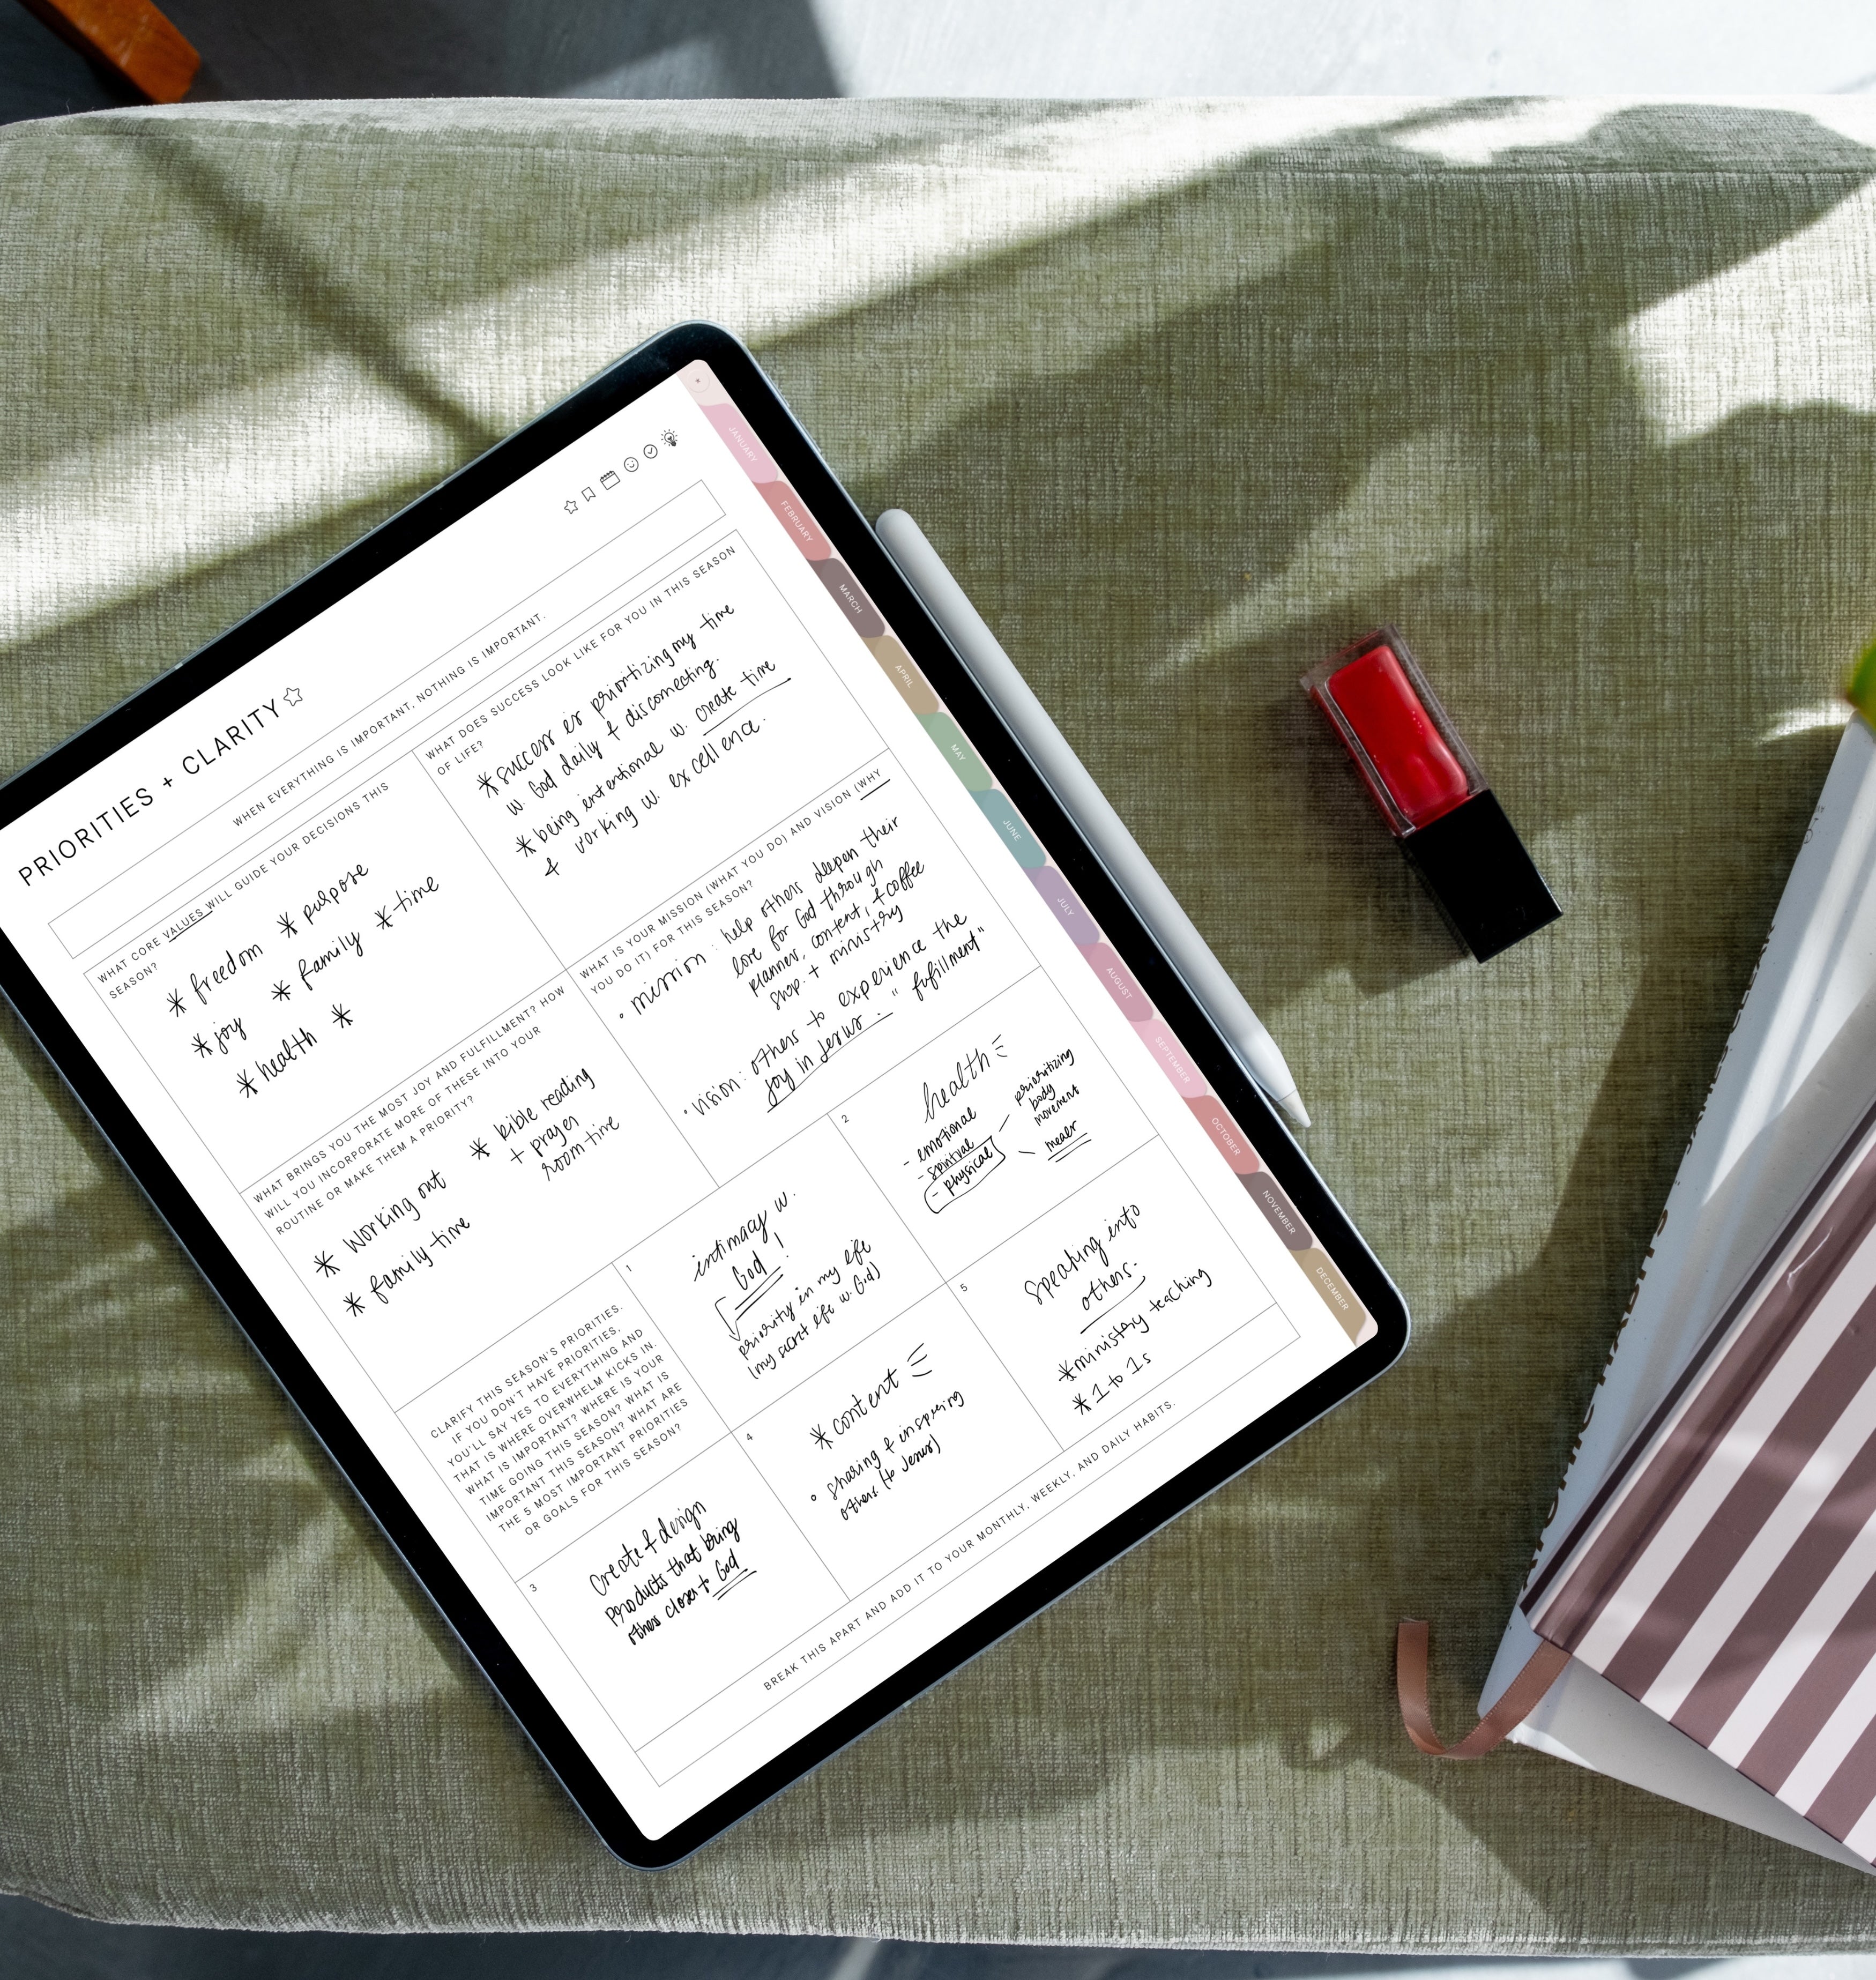 PRIORITIES + CLARITY
WHEN EVERYTHING IS IMPORTANT, NOTHING IS IMPORTANT.
WHAT CORE VALUES WILL GUIDE YOUR DECISIONS THIS
SEASON?
* freedom * purpose
* joy * family * time
* health *
WHAT DOES SUCCESS LOOK LIKE FOR YOU IN THIS SEASON
OF LIFE?
* success is prioritizing my time
w. God daily & disconnecting.
* being intentional w. create time
& working w. excellence.
WHAT BRINGS YOU THE MOST JOY AND FULFILLMENT? HOW
WILL YOU INCORPORATE MORE OF THESE INTO YOUR
ROUTINE OR MAKE THEM A PRIORITY?
* working out * bible reading
+ prayer
room time
* family time
WHAT IS YOUR MISSION (WHAT YOU DO) AND VISION (WHY
YOU DO IT) FOR THIS SEASON?
• mission: help others deepen their
love for God through
planner, content, & coffee
shop. + ministry
• vision: others to experience the
joy in Jesus. "fufillment"
CLARIFY THIS SEASON'S PRIORITIES.
IF YOU DON'T HAVE PRIORITIES,
YOU'LL SAY YES TO EVERYTHING AND
THAT IS WHERE OVERWHELM KICKS IN.
WHAT IS IMPORTANT? WHERE IS YOUR
TIME GOING THIS SEASON? WHAT IS
IMPORTANT THIS SEASON? WHAT ARE
THE 5 MOST IMPORTANT PRIORITIES
OR GOALS FOR THIS SEASON?
1
intimacy w.
God!
priority in my life
(my secret life w. God)
2
health
- emotional
- spiritual
- physical
prioritizing
body
movement
3
Create & design
products that bring
others closer to God
4
* content
• sharing & inspiring
others (to Jesus)
5
Speaking into
others.
* ministry teaching
* 1 to 1s
BREAK THIS APART AND ADD IT TO YOUR MONTHLY, WEEKLY, AND DAILY HABITS.
JANUARY
FEBRUARY
MARCH
APRIL
MAY
JUNE
JULY
AUGUST
SEPTEMBER
OCTOBER
NOVEMBER
DECEMBER